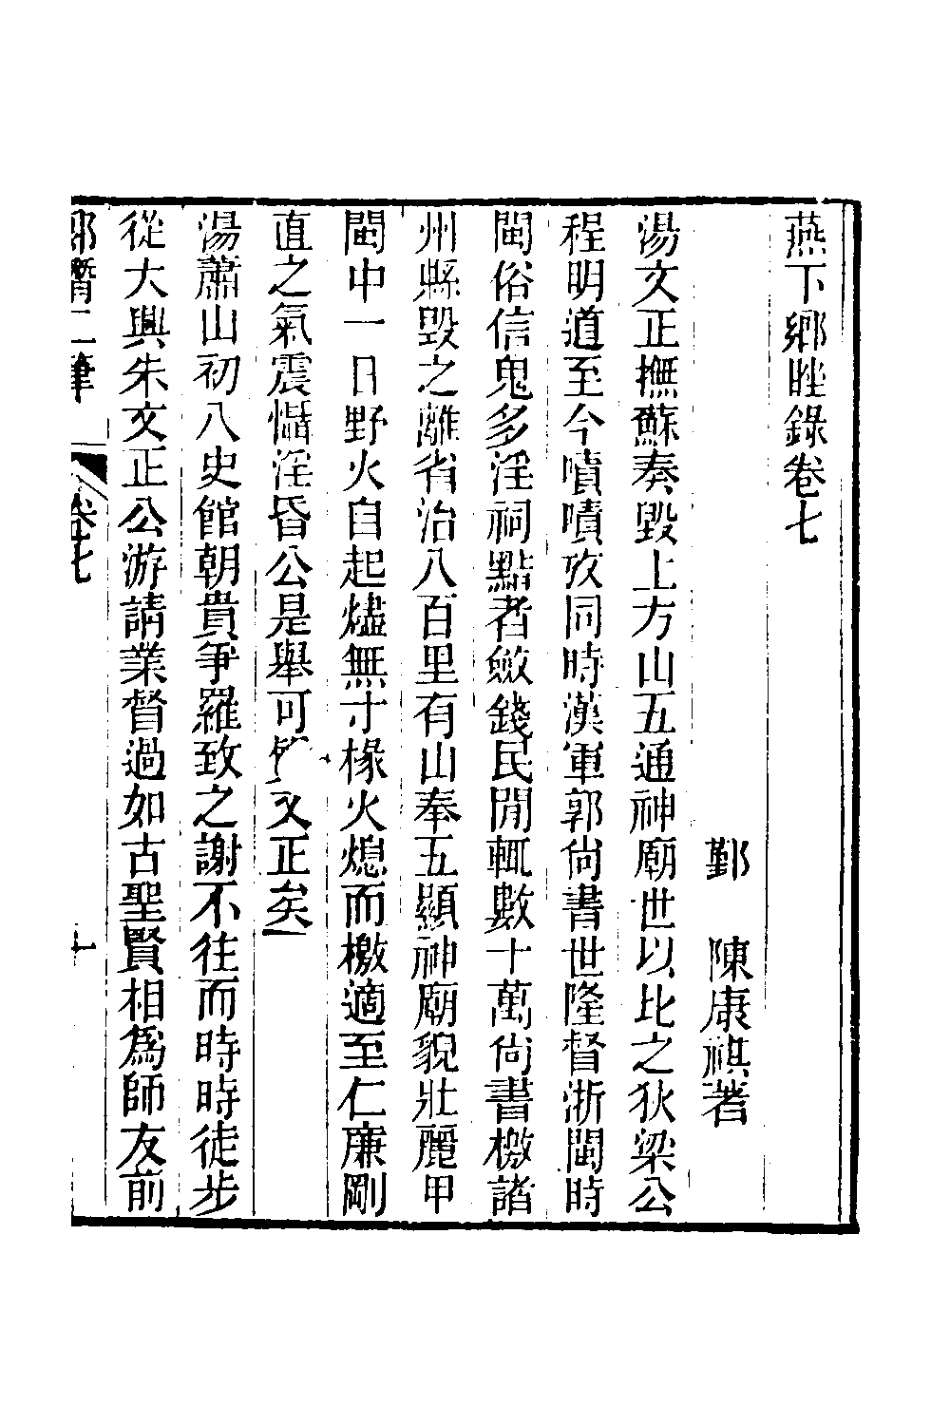 燕下鄉脞錄卷七
鄞　陳康祺著
湯文正撫蘇奏毀上方山五通神廟世以比之狄梁公
程明道至今嘖嘖攷同時漢軍郭尙書世隆督浙閩時
閩俗信鬼多淫祠黠者斂錢民閒輒數十萬尙書檄諸
州縣毀之離省治八百里有山奉五顯神廟貌壯麗甲
閩中一日野火自起燼無寸椽火熄而檄適至仁廉剛
直之氣震懾淫昏公是舉可文正矣
湯蕭山初入史館朝貴爭羅致之謝不往而時時徒步
從大興朱文正公游請業督過如古聖賢相爲師友前
郎潛二筆　卷七　一